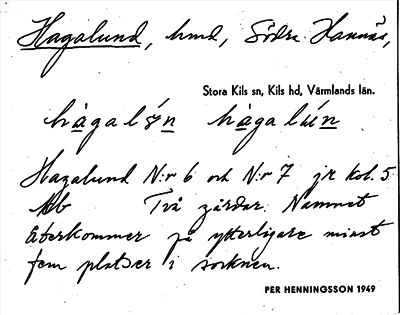 Hagalund, hmd, Södra Hannäs,
Stora Kils sn, Kils hd, Värmlands län.
hågalśn hågalún
Hagalund N:r 6 och N:r 7 jr kol. 5
Två gårdar. Namnet
återkommer på ytterligare minst
fem platser i socknen.
PER HENNINGSSON 1949